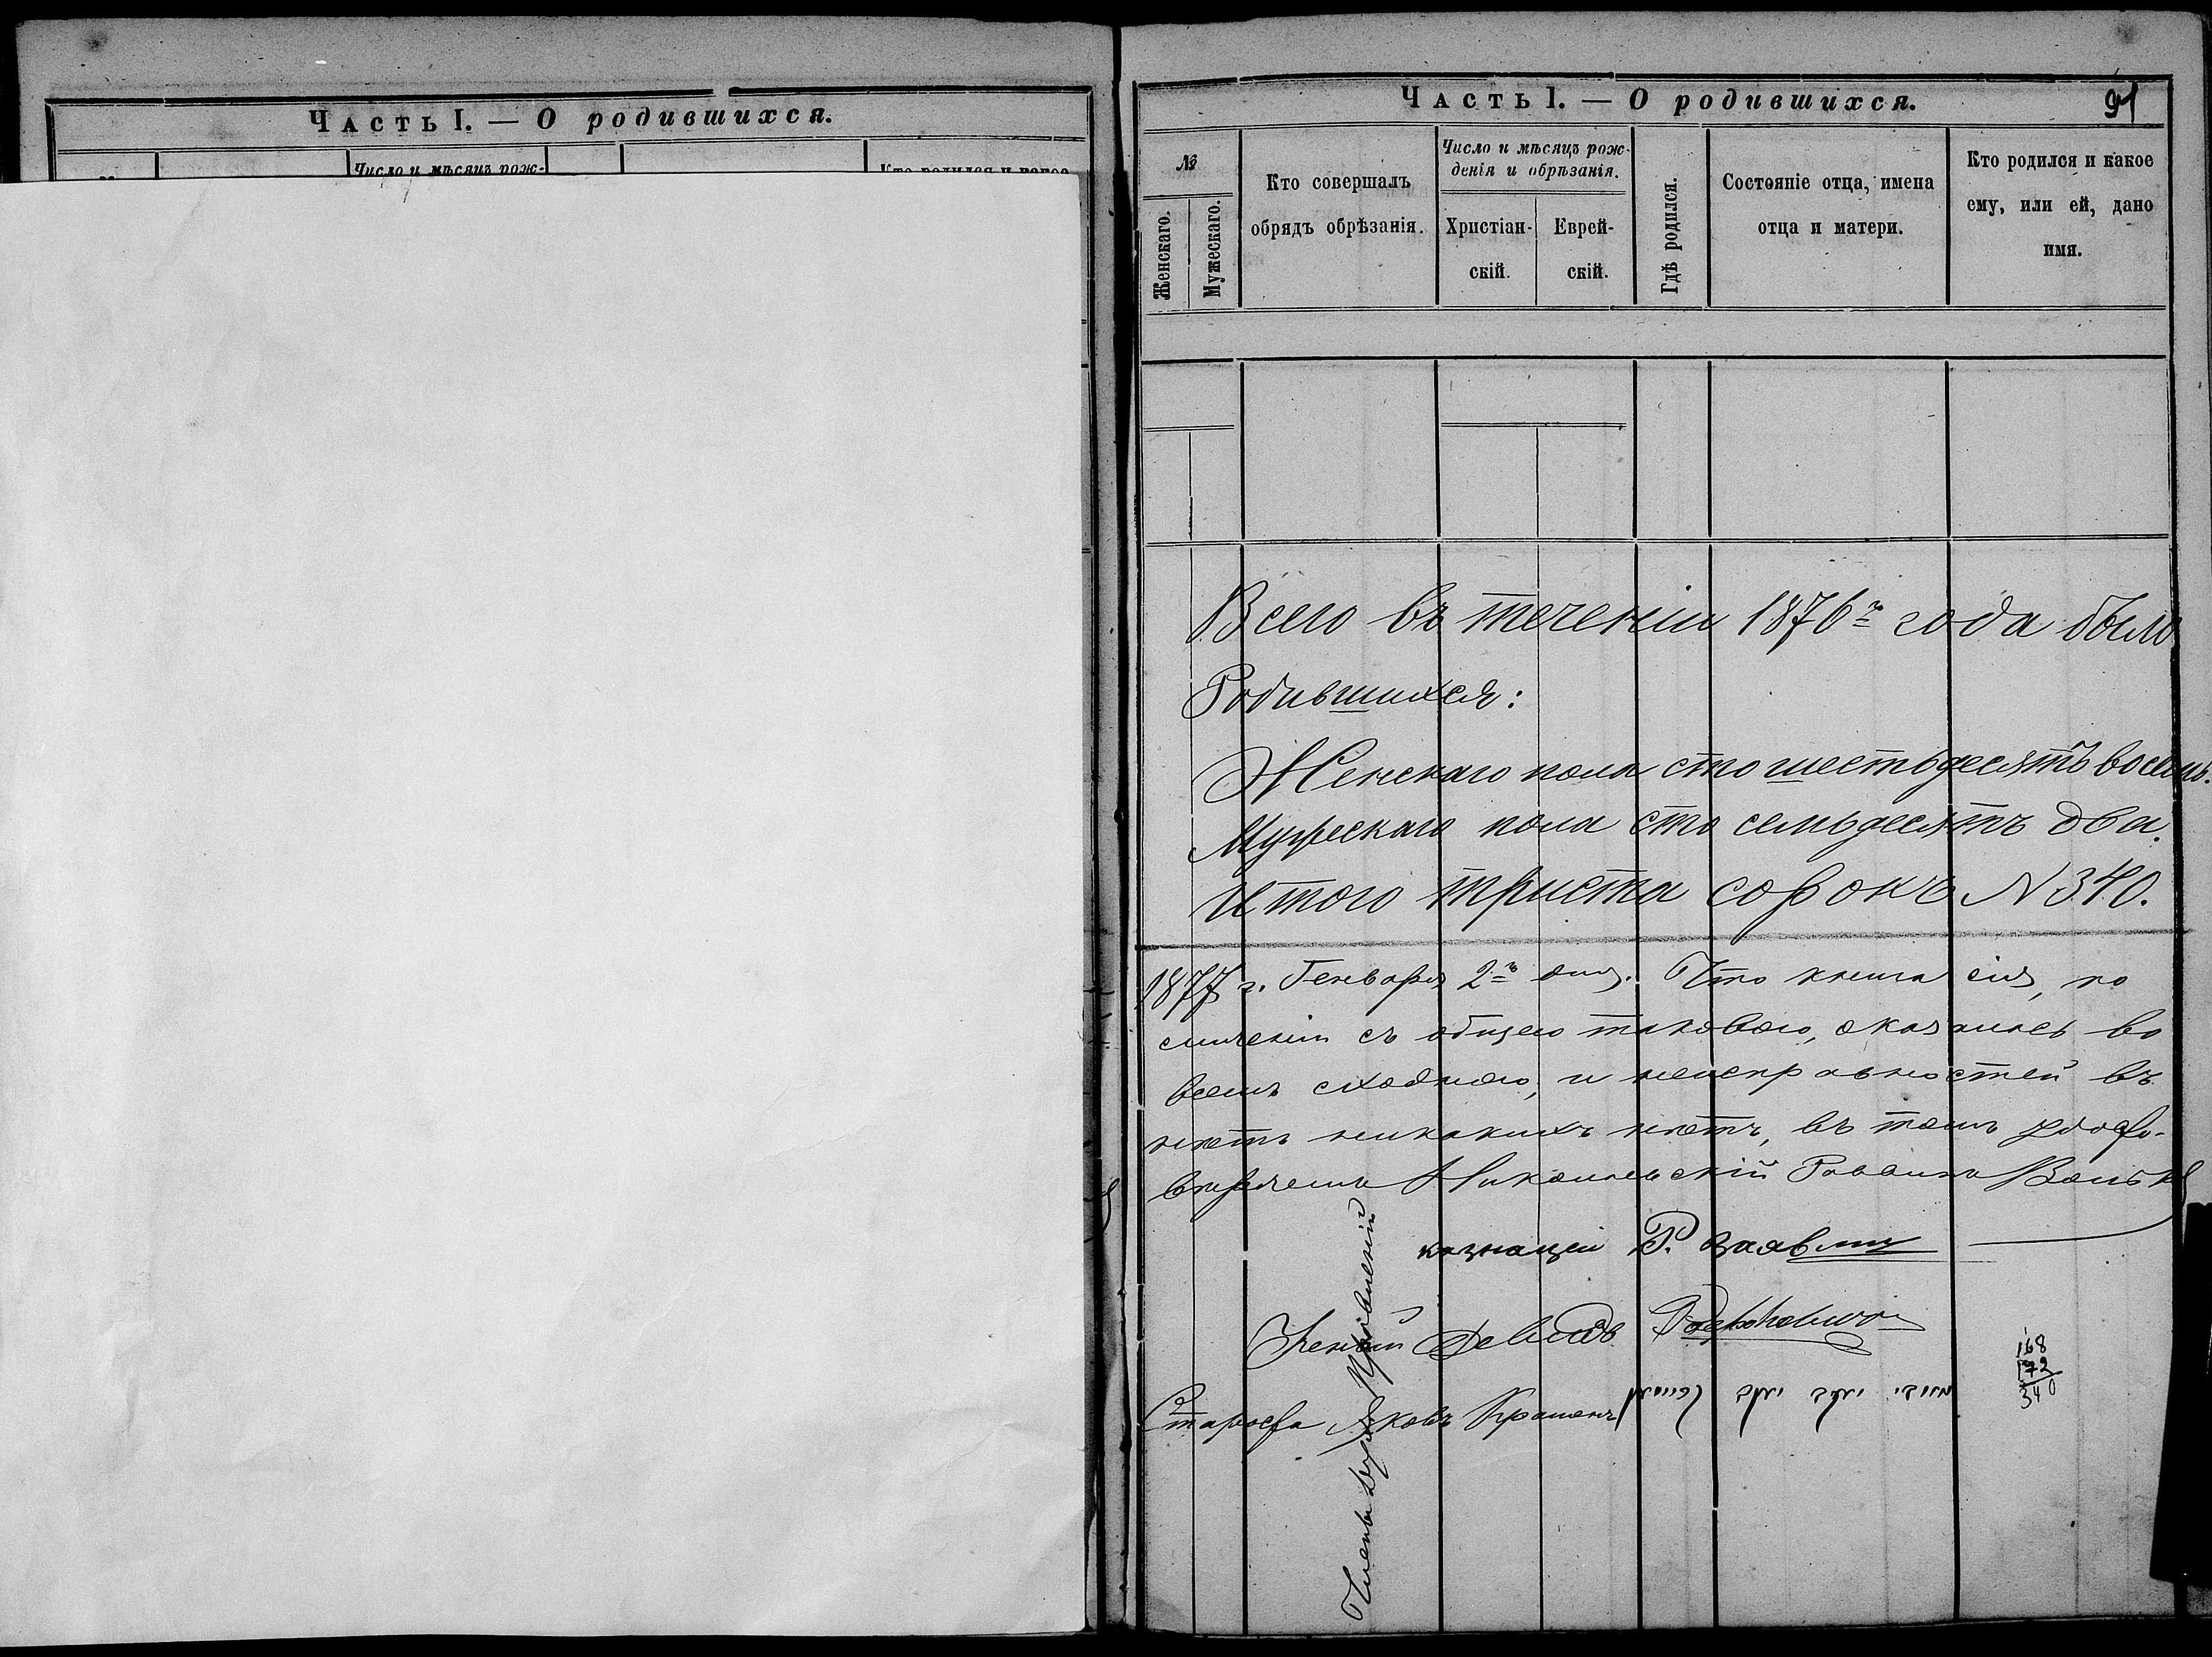 Часть I. — О родившихся.
Число и мѣсяцъ рож-
Часть I. — О родившихся.
91
№
Женскаго.
Мужескаго.
Кто совершалъ
обрядъ обрѣзанія.
Число и мѣсяцъ рож-
денія и обрѣзанія.
Христіан-
скій.
Еврей-
скій.
Гдѣ родился.
Состояніе отца, имена
отца и матери.
Кто родился и какое
ему, или ей, дано
имя.
Всего въ теченіи 1876 г. года было
Родившихся:
Женскаго пола сто шестьдесятъ восемь.
Мужескаго пола сто семьдесятъ два.
Итого триста сорокъ N 340.
1877 г. Генваря 2 г. дня. Что книга сія, по
сличеніи съ общею таковою, оказалась во
всемъ сходною, и неисправностей въ
никакихъ нѣтъ, въ томъ удосто-
вѣряемъ Николаевскій Раввинъ
казначей Р.
Ученый Давидъ
Староста Яковъ
Члены Дух. Правленій
168
172
340